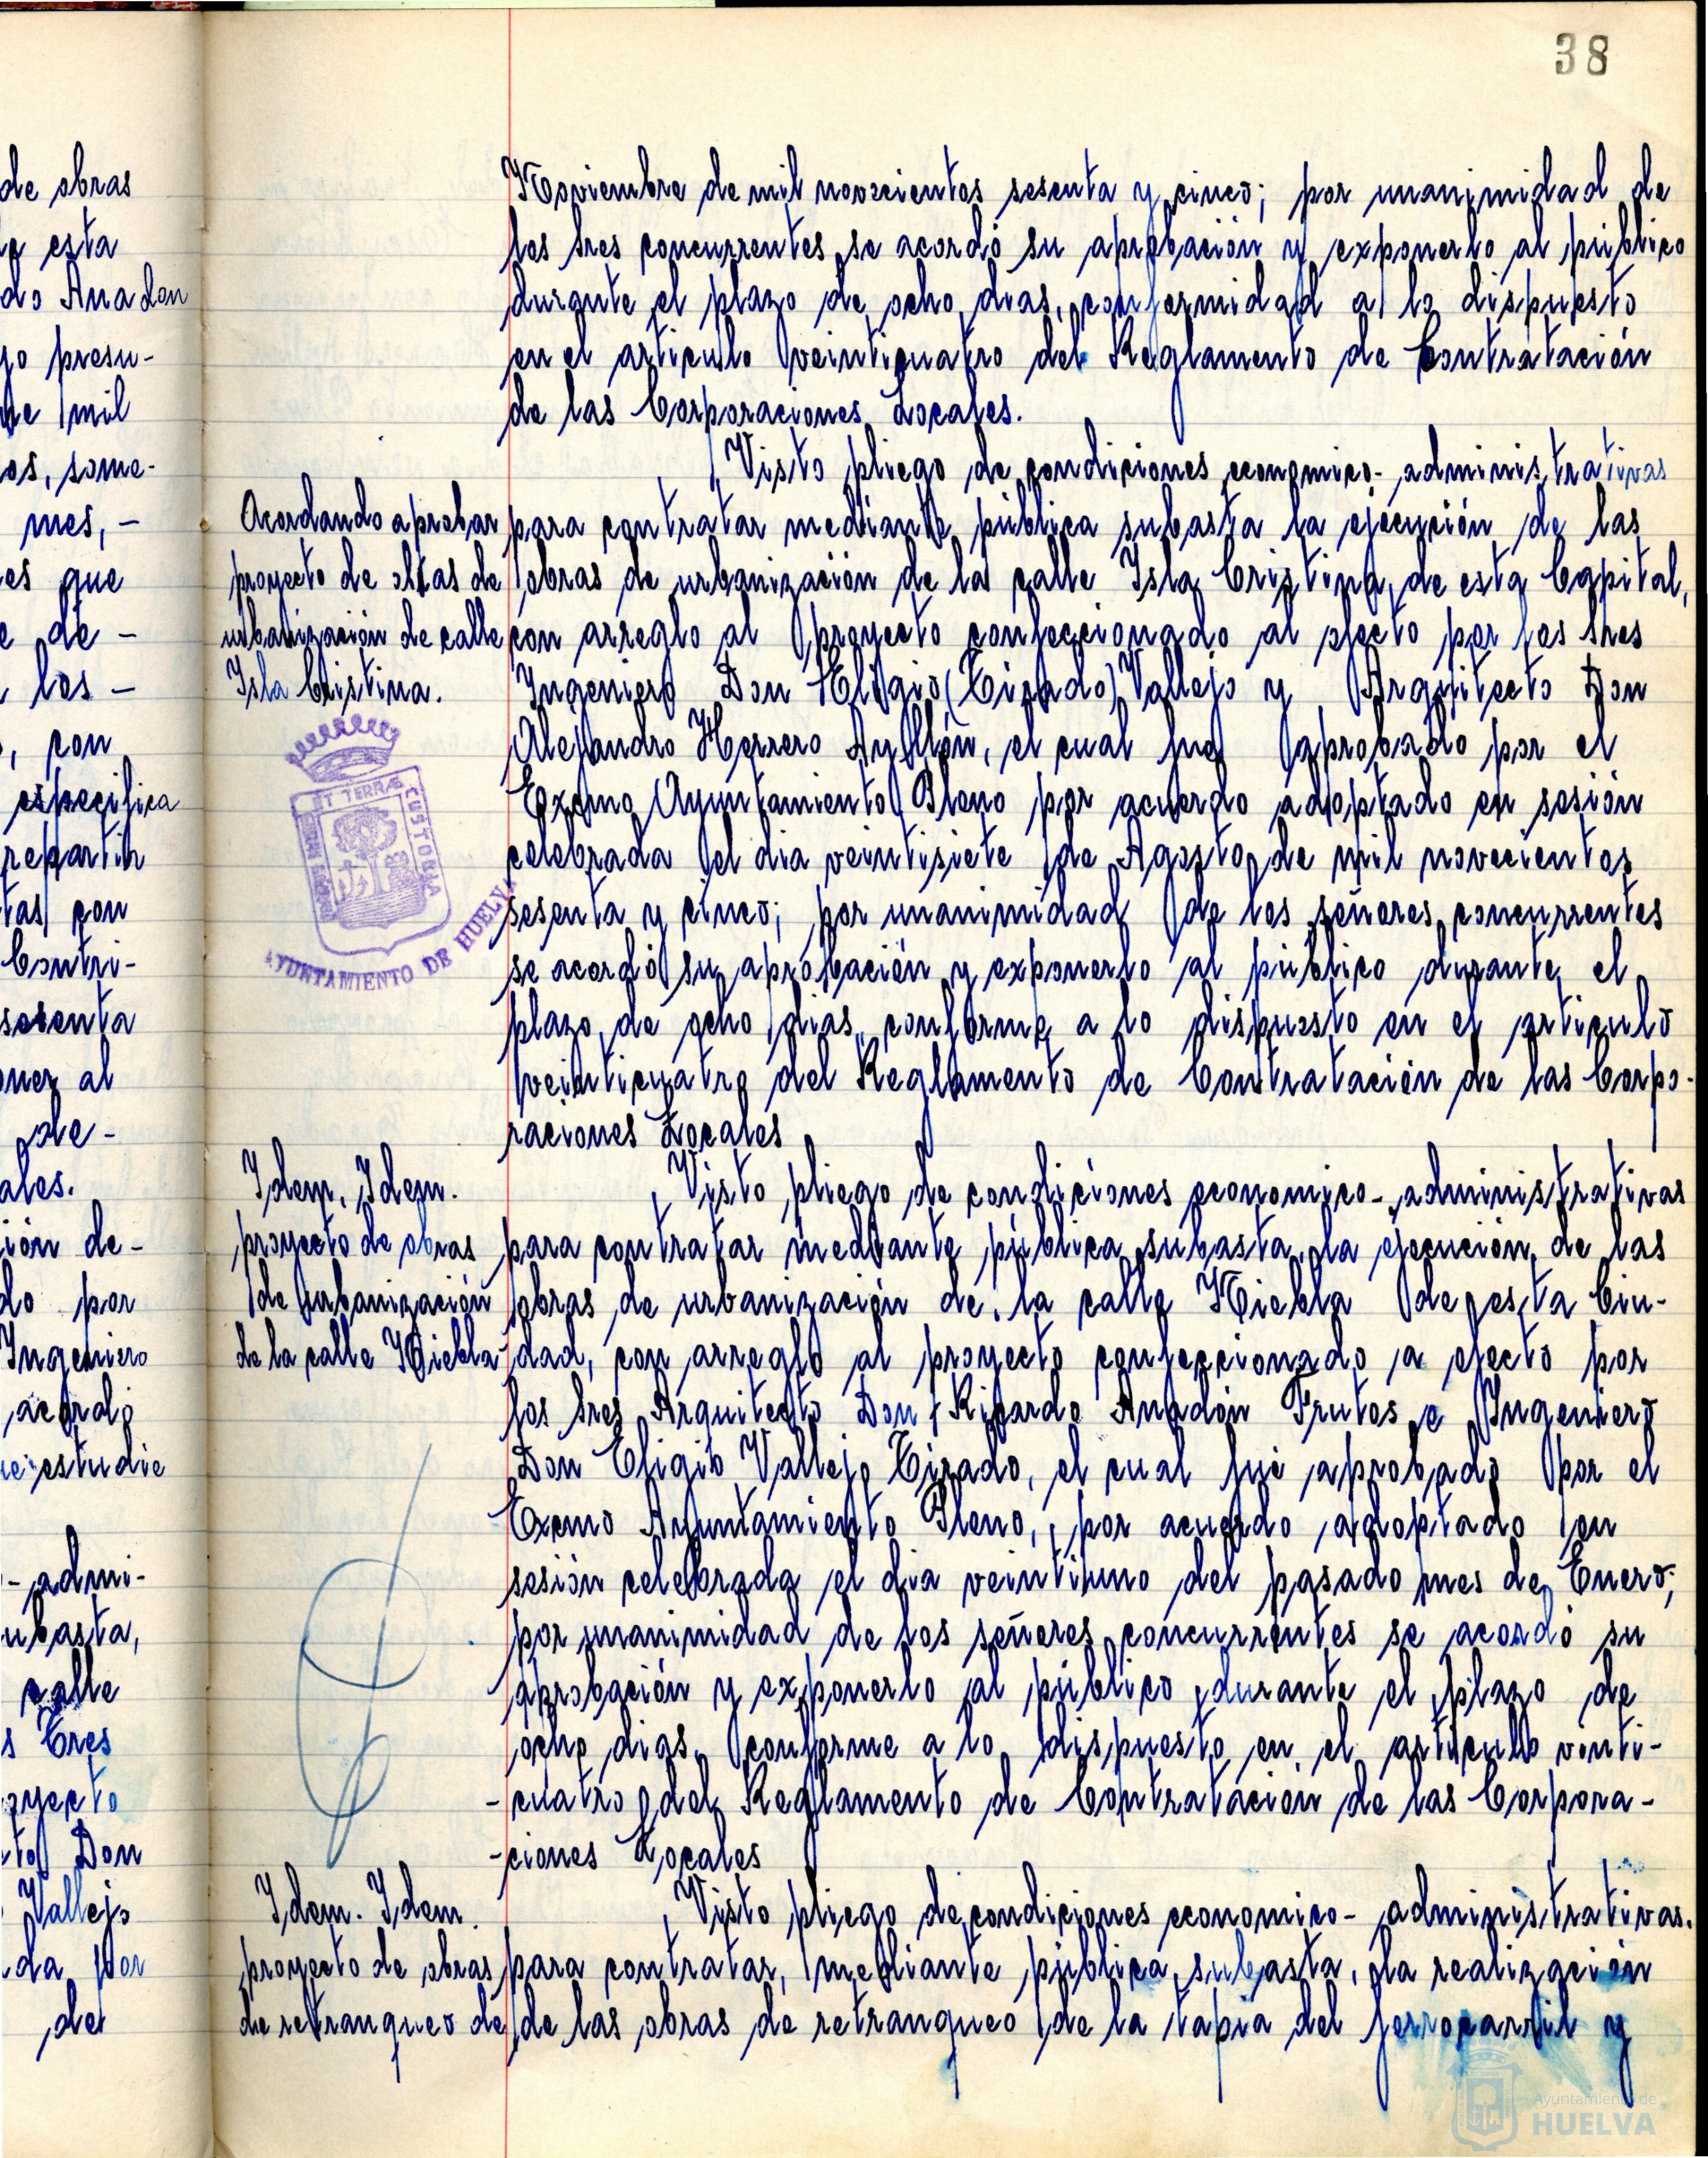 38
de obras
esta
do Anadon
presu-
mil
os, some-
mes, -
es que
de -
los -
, con
especifica
repartir
tas con
Contri-
sesenta
oner al
de-
ales.
ión de-
do por
Ingeniero
acordó
estudie
- admi-
ubasta,
calle
s Tres
oyecto
to Don
Vallejo
da por
del
Noviembre de mil novecientos sesenta y cinco; por unanimidad de
los sres concurrentes se acordó su aprobación y exponerlo al público
durante el plazo de ocho dias, conformidad a lo dispuesto
en el articulo veinticuatro del Reglamento de Contratación
de las Corporaciones Locales.
Visto pliego de condiciones economico- administrativas
Acordando aprobar
proyecto de obras de
urbanización de calle
Isla Cristina.
para contratar mediante pública subasta la ejecución de las
obras de urbanización de la calle Isla Cristina, de esta Capital,
con arreglo al proyecto confeccionado al efecto por los sres
Ingeniero Don Eligio (Tirado) Vallejo y Arquitecto Don
Alejandro Herrero Ayllón, el cual fue aprobado por el
Excmo Ayuntamiento Pleno por acuerdo adoptado en sesión
celebrada el dia veintisiete de Agosto de mil novecientos
sesenta y cinco; por unanimidad de los señores concurrentes
se acordó su aprobación y exponerlo al público durante el
plazo de ocho dias conforme a lo dispuesto en el articulo
veinticuatro del Reglamento de Contratación de las Corpo-
raciones Locales
ET TERRÆ CUSTODIA
AYUNTAMIENTO DE HUELVA
Idem. Idem.
proyecto de obras
de urbanización
de la calle Niebla
Visto pliego de condiciones economico- administrativas
para contratar mediante pública subasta la ejecución de las
obras de urbanización de la calle Niebla de esta Ciu-
dad, con arreglo al proyecto confeccionado a efecto por
los sres Arquitecto Don Ricardo Anadón Frutos e Ingeniero
Don Eligio Vallejo Tirado, el cual fué aprobado por el
Excmo Ayuntamiento Pleno, por acuerdo adoptado en
sesión celebrada el dia veintiuno del pasado mes de Enero;
por unanimidad de los señores concurrentes se acordó su
aprobación y exponerlo al público durante el plazo de
ocho dias conforme a lo dispuesto en el articulo vinti-
-cuatro del Reglamento de Contratación de las Corpora-
-ciones Locales
Idem. Idem.
proyecto de obras
de retranqueo de
Visto pliego de condiciones economico- administrativas.
para contratar, mediante pública subasta, la realización
de las obras de retranqueo de la tapia del ferrocarril y
Ayuntamiento de
HUELVA